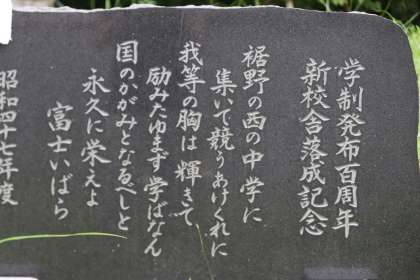 学制発布百周年
新校舎落成記念
裾野の西の中学に
集いて競うあけくれに
我等の胸は輝きて
励みたゆまず学ばなん
国のかがみとなるべしと
永久に栄えよ
富士いばら
昭和四十七年度